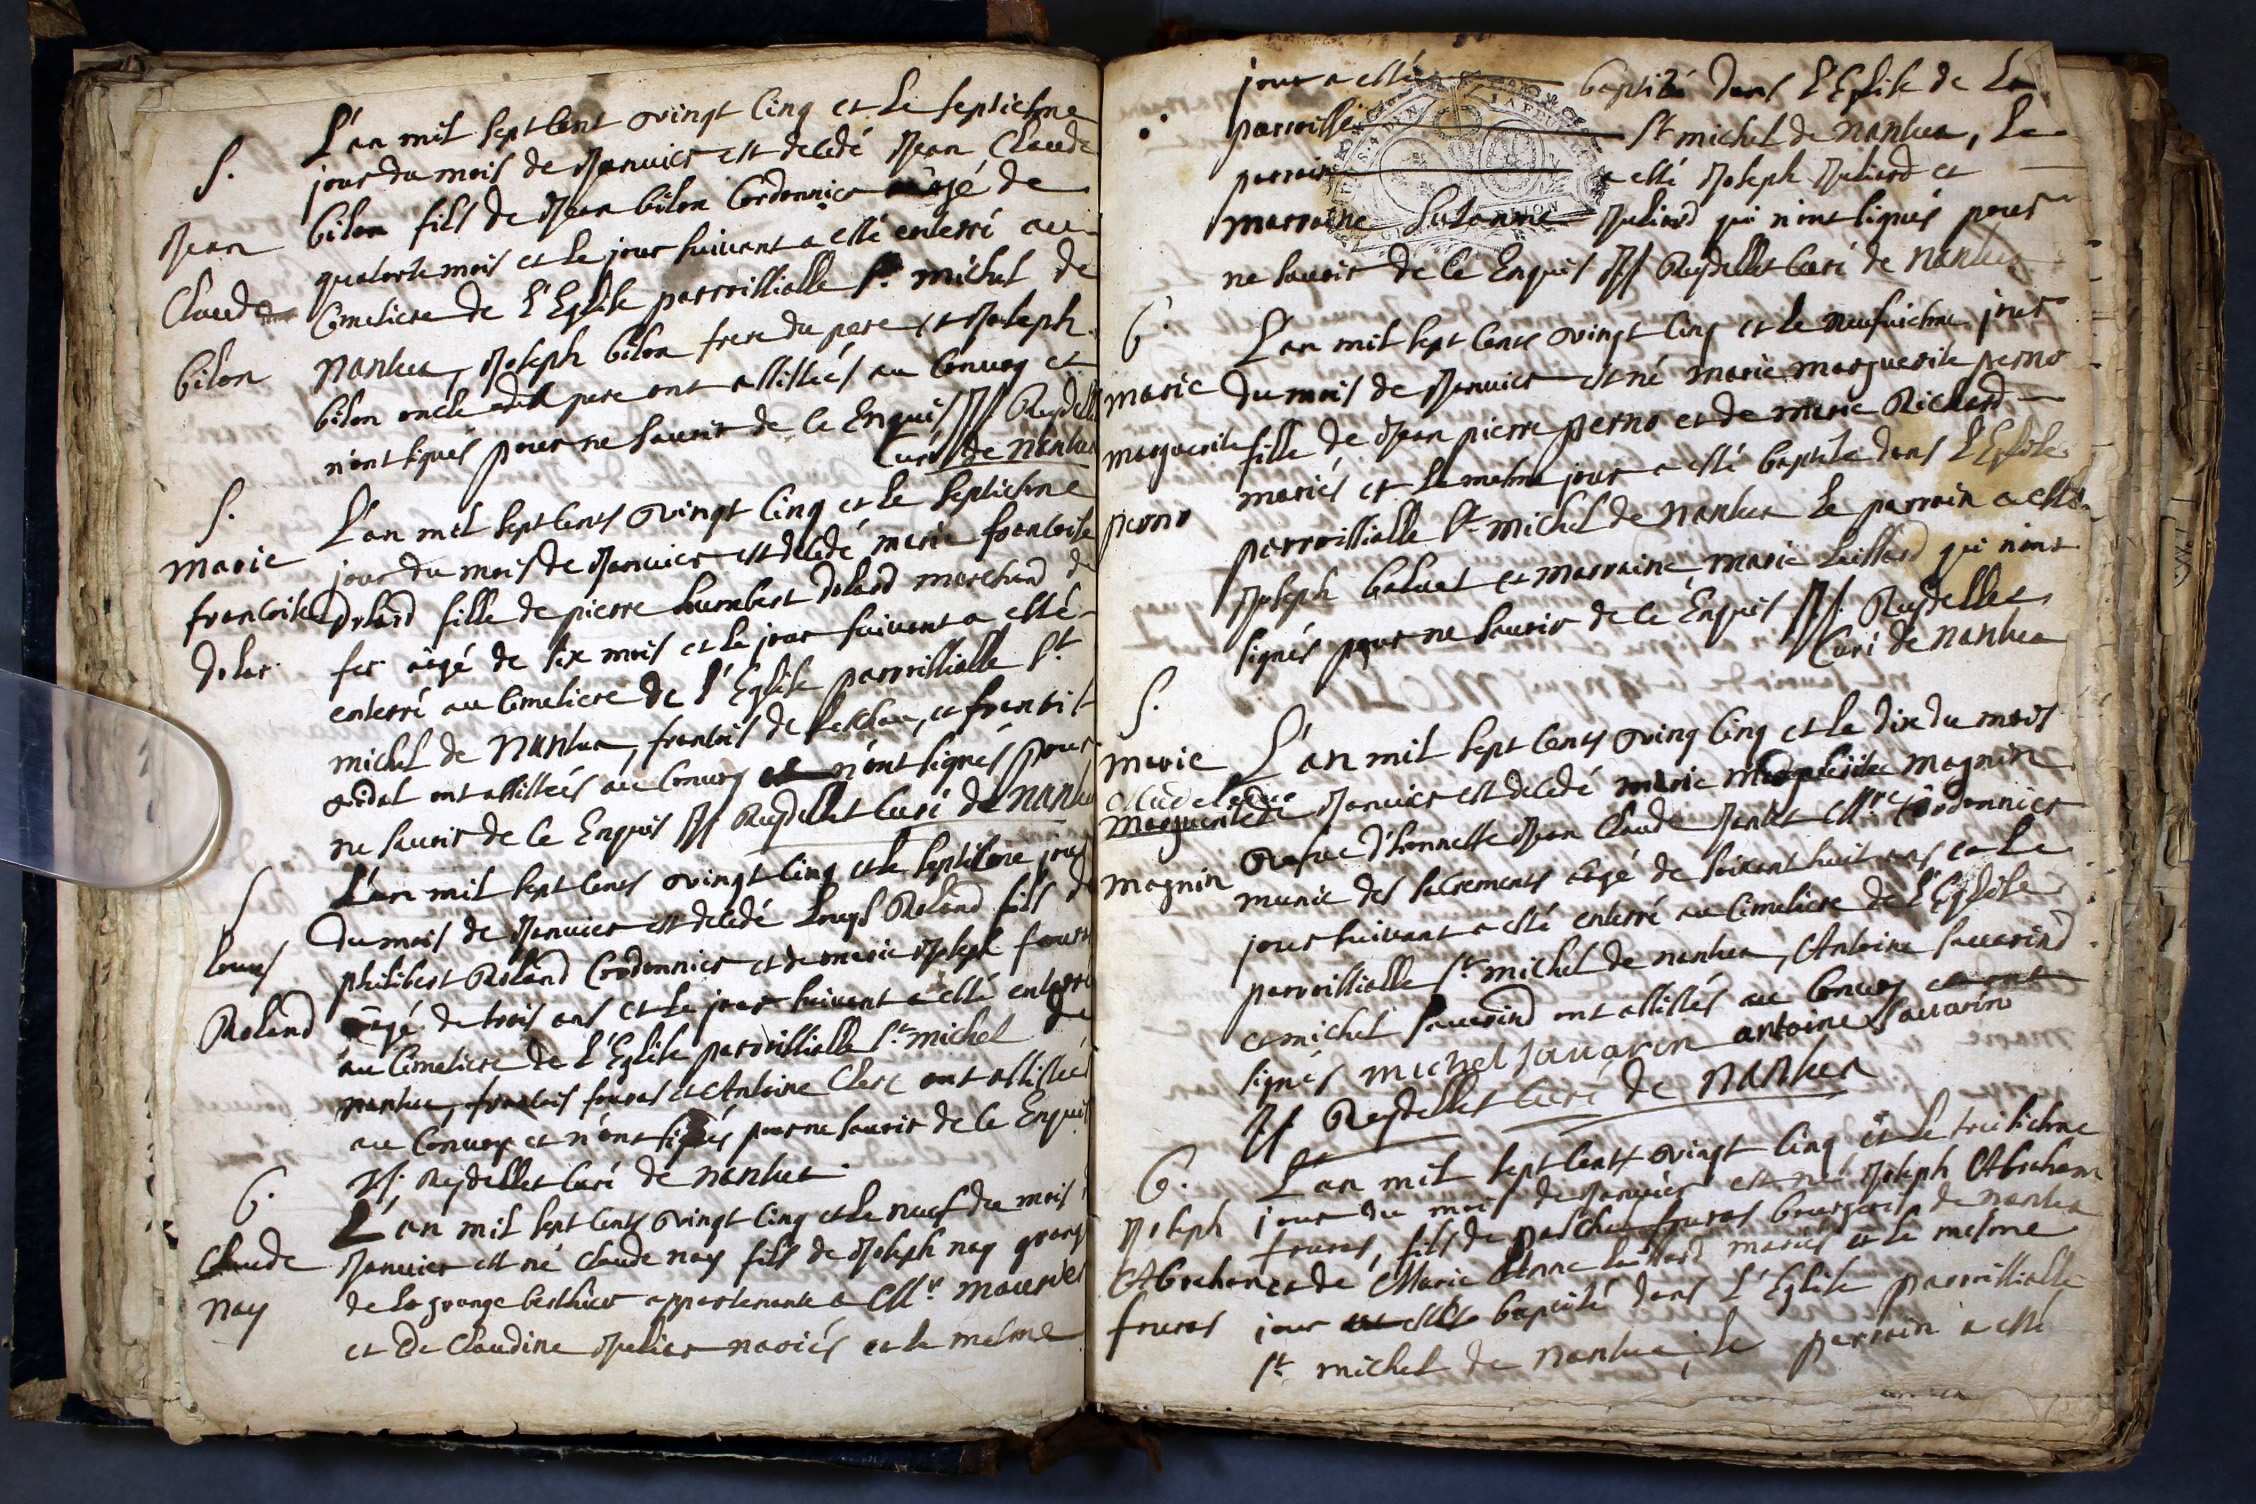 S.
Jean
Claude
bilon
L'an mil sept cent vingt cinq et le septiesme
jour du mois de Janvier est decedé Jean Claude
bilon fils de Jean bilon Cordonnier aagé de
quatorze mois et le jour suivant a esté enterré au
Cimetiere de l'Eglise parroissialle St. michel de
nantua, Joseph bilon frere du pere et Joseph
bilon oncle dudit pere ont assistés au Convoy et
n'ont signés pour ne sçavoir de ce Enquis Reydellet
Curé de nantua
S.
marie
francoise
dolar
L'an mil sept cents vingt cinq et le septiesme
jour du mois de Janvier est decedé marie francoise
dolard fille de pierre humbert dolard marchand de
fer aagé de six mois et le jour suivant a esté
enterré au Cimetiere de l'Eglise parroissialle St
michel de nantua, francois de et francois
vidal ont assistés au Convoy et n'ont signés pour
ne sçavoir de ce Enquis Reydellet Curé de nantua
S
Louys
Roland
L'an mil sept cents vingt cinq et le septiesme jour
du mois de Janvier est decedé Louys Roland fils de
philibert Roland Cordonnier et de marie Joseph
aagé de trois ans et le jour suivant a esté enterré
au Cimetiere de l'Eglise parroissialle St michel de
nantua, francois fouras et Antoine Clerc ont assistés
au Convoy et n'ont signés pour ne sçavoir de ce Enquis
Reydellet Curé de nantua
b.
Claude
nay
L'an mil sept cents vingt cinq et le neuf du mois
Janvier est né Claude nay fils de Joseph nay
de la grange appartenante a Mr
et de Claudine Julier mariés et le mesme
jour a esté baptisé dans l'Eglise de La
parroisse St michel de nantua, le
parrain a esté Joseph Juliard et
marraine Suzanne Juliard qui n'ont signés pour
ne sçavoir de ce Enquis Reydellet Curé de nantua
b.
marie
marguerite
perno
L'an mil sept cents vingt cinq et le neufviesme jour
du mois de Janvier est né marie marguerite perno
fille de Jean pierre perno et de marie Richard
mariés et le mesme jour a esté baptisée dans l'Eglise
parroissialle St michel de nantua le parrain a esté
Joseph et marraine marie qui n'ont
signés pour ne sçavoir de ce Enquis Reydellet
Curé de nantua
S.
marie
Madeleine
marguerite
magnin
L'an mil sept cents vingt cinq et le dix du mois
de Janvier est decedé marie magnin
vefve d'honneste Jean Claude Mre Cordonnier
munie des sacrements aagé de soixant huit ans et le
jour suivant a esté enterré au Cimetiere de l'Eglise
parroissialle St michel de nantua, Antoine savarind
et michel savarind ont assistés au Convoy et ont
signés michel savarin antoine Savarin
Reydellet Curé de nantua
b.
Joseph
Abraham
fouras
L'an mil sept cents vingt cinq et le treisiesme
jour du mois de Janvier est né Joseph Abraham
fouras, fils de paschal fouras bourgeois de nantua
et de Marie Anne mariés et le mesme
jour a esté baptisé dans l'Eglise parroissialle
St michel de nantua, le parrain a esté